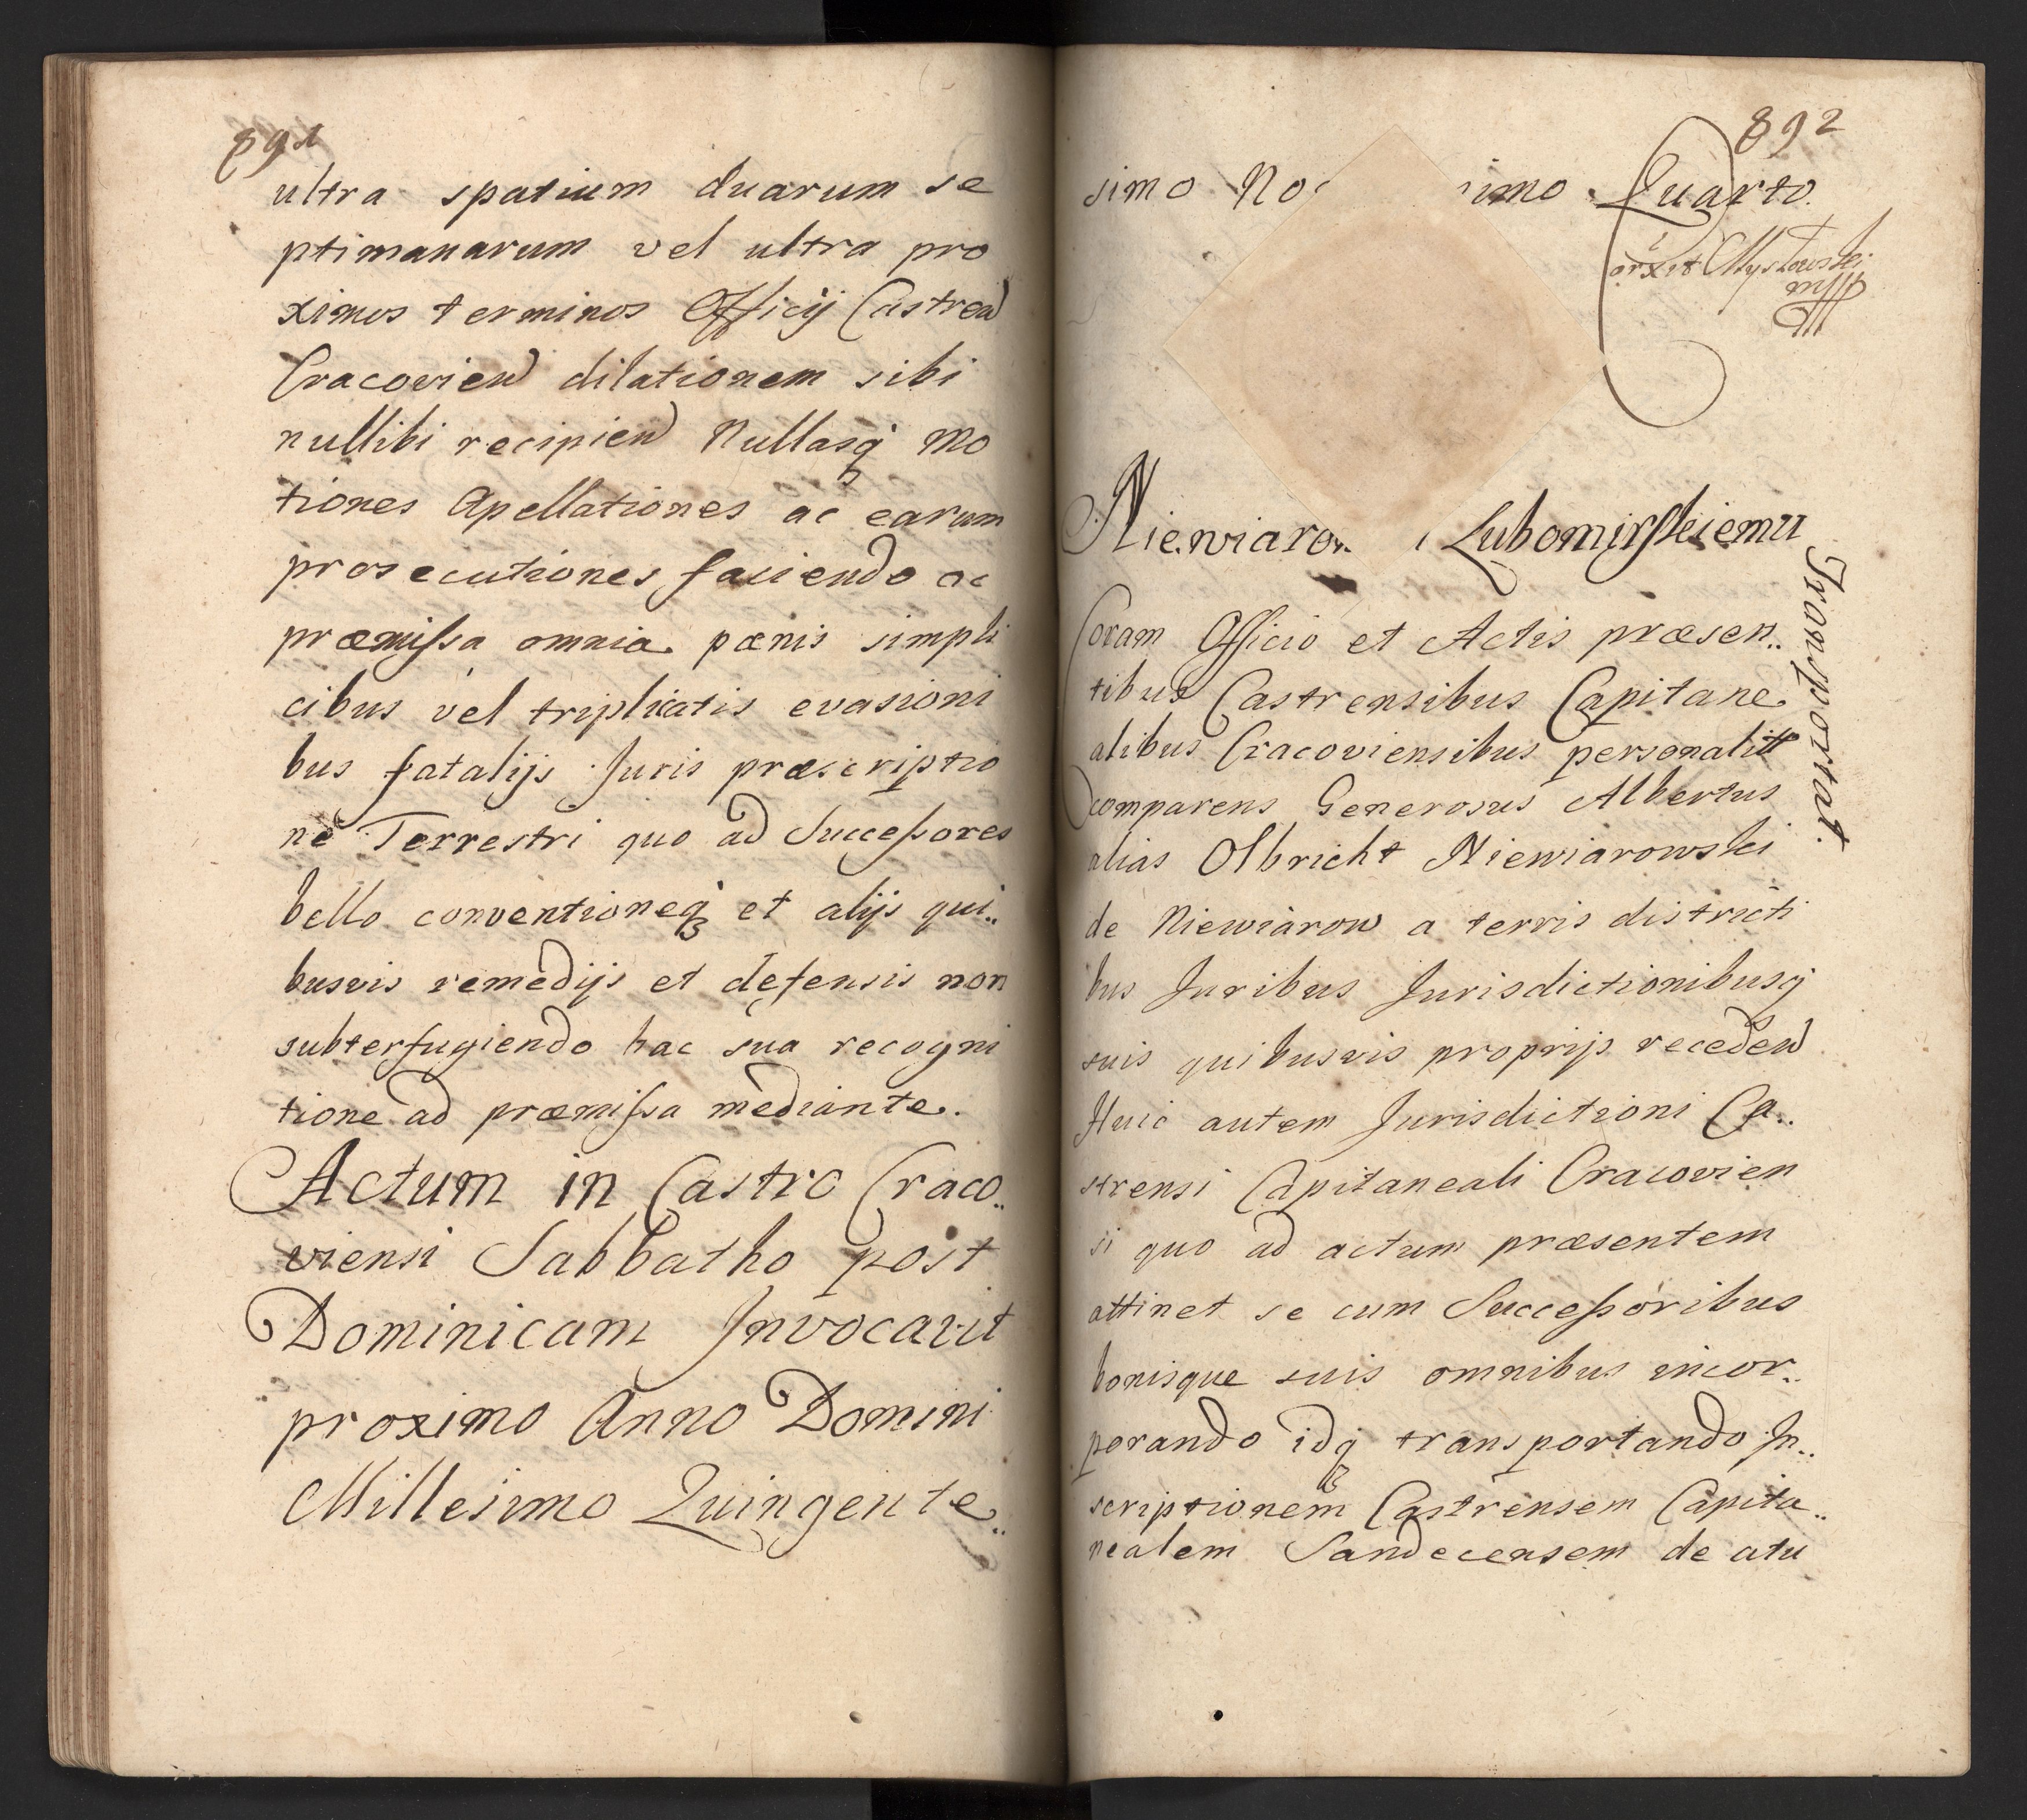 891
ultra spatium duarum se
ptimanarum vel ultra pro
ximos terminos Officij Castren
Cracovien dilationem sibi
nullibi recipien Nullasq Mo
tiones Apellationes ac earum
prosecutiones faciendo ac
præmissa omnia pænis simpli
cibus vel triplicatis evasioni
bus fatalijs Juris præscriptio
ne Terrestri quo ad Successores
bello conventioneq et alijs qui..
busvis remedijs et defensis non
subterfugiendo hac sua recogni
tione ad præmissa mediante.
Actum in Castro Craco..
viensi Sabbatho post
Dominicam Invocavit
proximo Anno Domini
Millesimo Quingente..
892
simo No imo Quarto.
Niewiaro Lubomirskiemu
Transportat.
Coram Officio et Actis præsen..
tibus Castrensibus Capitane
alibus Cracoviensibus personalitt
comparens Generosus Albertus
alias Olbricht Niewiarowski
de Niewiarow a terris districti
bus Juribus Jurisdictionibusq
suis quibusvis proprijs receden
Huic autem Jurisdictioni Ca..
strensi Capitaneali Cracovien
si quo ad actum præsentem
attinet se cum Successoribus
bonisque suis omnibus incor..
porando idq transportando In..
scriptionem Castrensem Capita..
nealem Sandecensem de actu